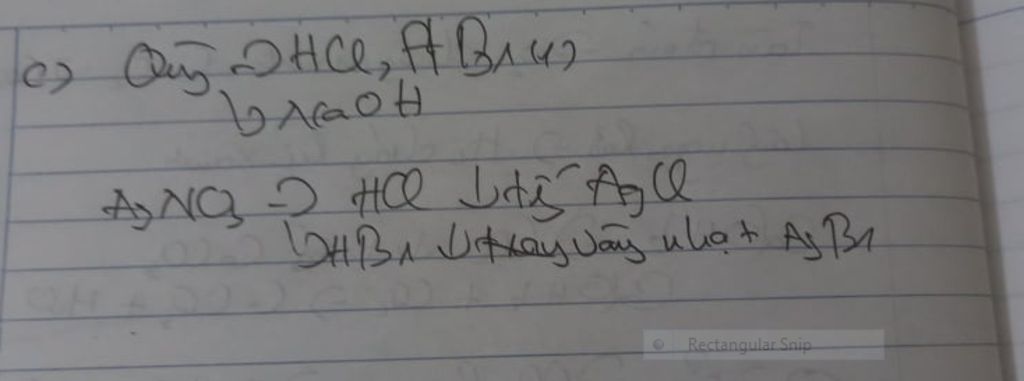 c) Quỳ → HCl, HBr (1)
↳ NaOH
AgNO3 → HCl ↓ AgCl
↳ HBr ↓ vàng nhạt AgBr
Rectangular Snip